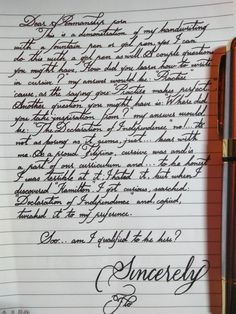 Dear r/Penmanship porn
This is a demonstration of my handwriting
with a fountain pen or gel pen, yes I can
do this with a gel pen as well. A couple questions
you might have, "How did you learn how to write
in cursive?" my answer would be: "Practice"
'cause, as the saying goes "Practice makes perfect"
Another question you might have is: "Where did
you take inspiration from?" my answer would
be: "The Declaration of Independence" no!... its
not as boring as it seems, just... bear with
me. As a proud Filipino, cursive was and is
a part of our curriculum and... to be honest
I was terrible at it, I hated it, but when I
discovered Hamilton, I got curious, searched
Declaration of Independence and copied,
tweaked it to my preference.
Soo... am I qualified to be here?
Sincerely